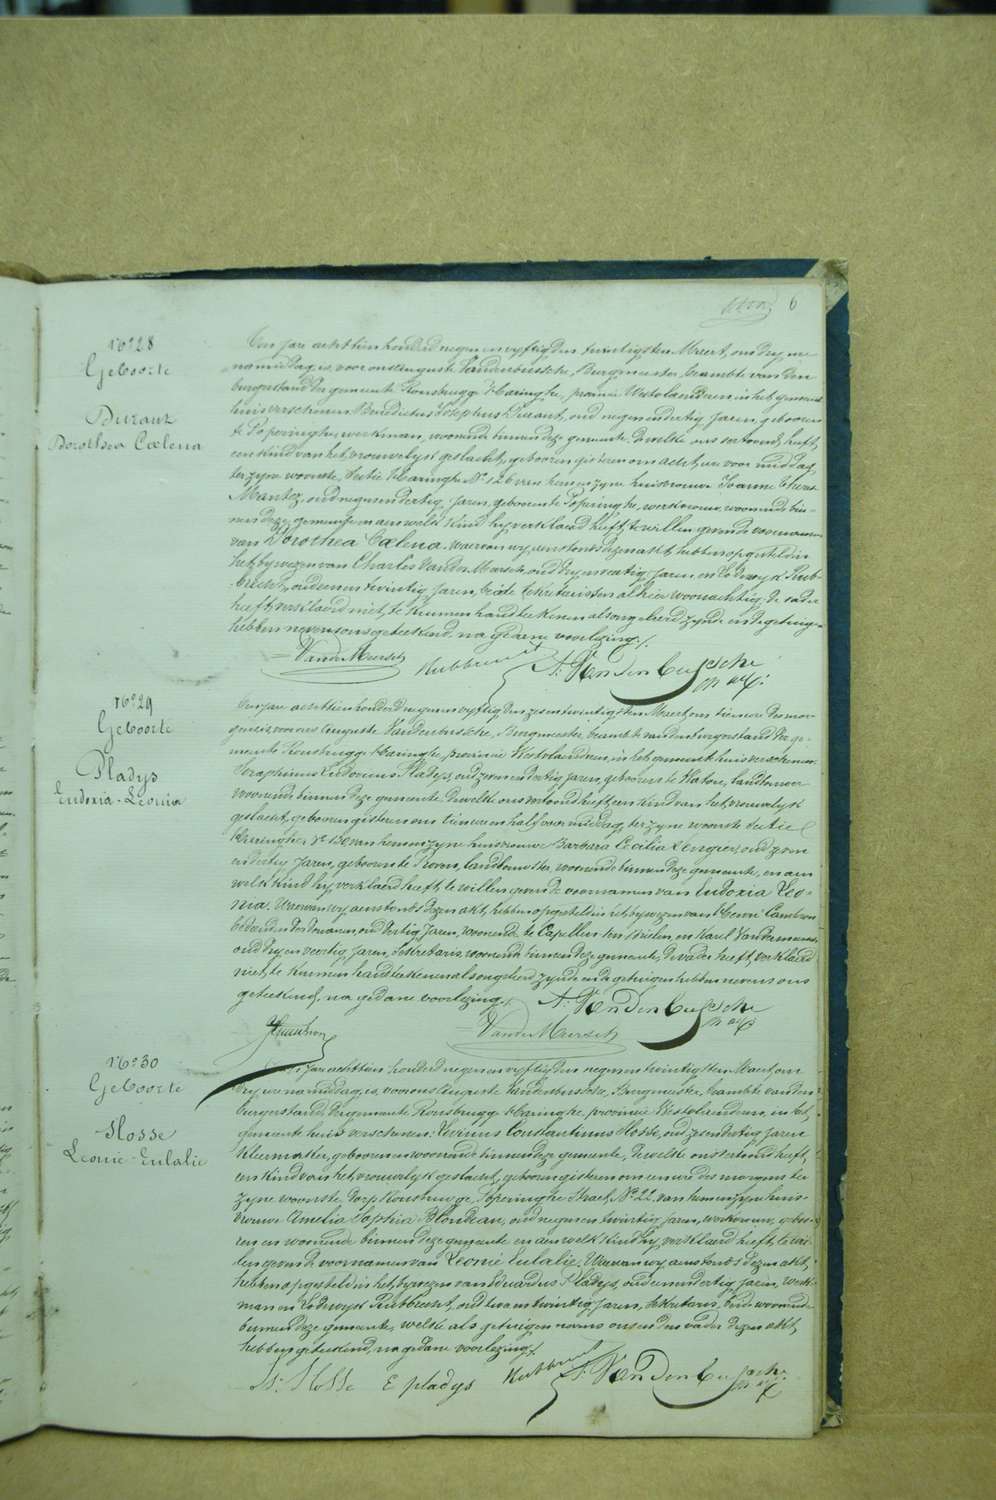 6
N° 28
Geboorte
Durant
Dorothea Cœlena
Den jare achttien honderd negen en vyftig den twintigsten Meert, om dry ure
namiddag, is voor ons Auguste Vandenbussche, Burgmeester, beambte van den
burgerstand der gemeente Rousbrugge Haringhe, provincie Westvlaenderen in het gemeente
huis verschenen Benedictus Josephus Durant, oud negen en dertig jaren, geboren
te Poperinghe, werkman, woonende binnen deze gemeente, Dewelke ons vertoond heeft,
een kind van het vrouwelyk geslacht, geboren gisteren om acht ure voor middag,
ter zyne woonste, Sectie Haringhe N° 126 van hem en zyne huisvrouw Joanne Theres
Mantez, oud negen en dertig jaren, geboren te Poperinghe, werkvrouw, woonende bin-
nen deze gemeente en aen welk kind hy verklaerd heeft te willen geven de voornamen
van Dorothea Cœlena. Waervan wy aenstonds dezen akt hebben opgesteld in
het bywezen van Charles Vander Meersch, oud dry en veertig jaren, en Lodewyk Rub-
brecht, oud een en twintig jaren, beide sekretarissen alhier woonachtig. De vader
heeft verklaerd niet te kunnen handteekenen als ongeleerd zynde en de getuigen
hebben nevens ons geteekend, na gedane voorlezing./.
Vander Meersch Rubbrecht A. Vandenbussche
N° 29
Geboorte
Pladys
Eudoxia-Leonia
Den jare achttien honderd negen en vyftig, den zes en twintigsten Meert, om tien ure des mor-
gens, is voor ons Auguste Vandenbussche, Burgmeester, beambte van den burgerstand der ge-
meente Rousbrugge Haringhe, provincie Westvlaenderen, in het gemeente huis verschenen
Seraphinus Ludovicus Pladys, oud zeven en dertig jaren, geboren te Watou, landbouwer
woonende binnen deze gemeente. Dewelke ons vertoond heeft, een kind van het vrouwelyk
geslacht, geboren gisteren om tien ure en half voor middag, ter zyne woonste Sectie
Haringhe N° 130 van hem en zyne huisvrouw Barbara Cecilia Vergier, oud zeven
en dertig jaren, geboren te Proven, landbouwster, woonende binnen deze gemeente, en aen
welk kind hy verklaerd heeft te willen geven de voornamen van Eudoxia Leo-
nia. Waervan wy aenstonds dezen akt hebben opgesteld in het bywezen van Henri Cambron
bediende der douanen, oud dertig jaren, woonende te Capellen ten Stielen, en Karel Vandermeersch
oud dry en veertig jaren, sekretaris woonende binnen deze gemeente. De vader heeft verklaerd
niet te kunnen handteekenen als ongeleerd zynde en de getuigen hebben nevens ons
geteekend, na gedane voorlezing./. A. Vandenbussche
Vander Meersch
N° 30
Geboorte
Hosse
Leonie-Eulalie
Den jare achttien honderd negen en vyftig den negen en twintigsten Maert, om
dry ure namiddag is, voor ons Auguste Vandenbussche, Burgmeester, beambte van den
burgerstand der gemeente Rousbrugge Haringhe, provincie Westvlaenderen, in het
gemeente huis verschenen: Livinus Constantinus Hosse, oud zes en dertig jaren
kleermaker, geboren en woonende binnen deze gemeente, Dewelke ons vertoond heeft,
een kind van het vrouwelyk geslacht, geboren gisteren om een ure des morgens ter
zyne woonste Dorp Rousbrugge, Poperinghe Straet, N° 22, van hem en zyne huis-
vrouwe Amelia Sophia Blondeau, oud negen en twintig jaren, werkvrouw, gebo-
ren en woonende binnen deze gemeente en aen welk kind hy verklaerd heeft, te wil-
len geven de voornamen van Leonie Eulalie. Waervan wy aenstonds dezen akt,
hebben opgesteld in het bywezen van Eduardus Pladys, oud een en dertig jaren, werk-
man en Lodewyk Rubbrecht, oud twee en twintig jaren, sekretaris, beide woonende
binnen deze gemeente, welke als getuigen nevens ons en den vader dezen akt,
hebben geteekend, na gedane voorlezing./.
Hosse E pladys Rubbrecht A. Vandenbussche